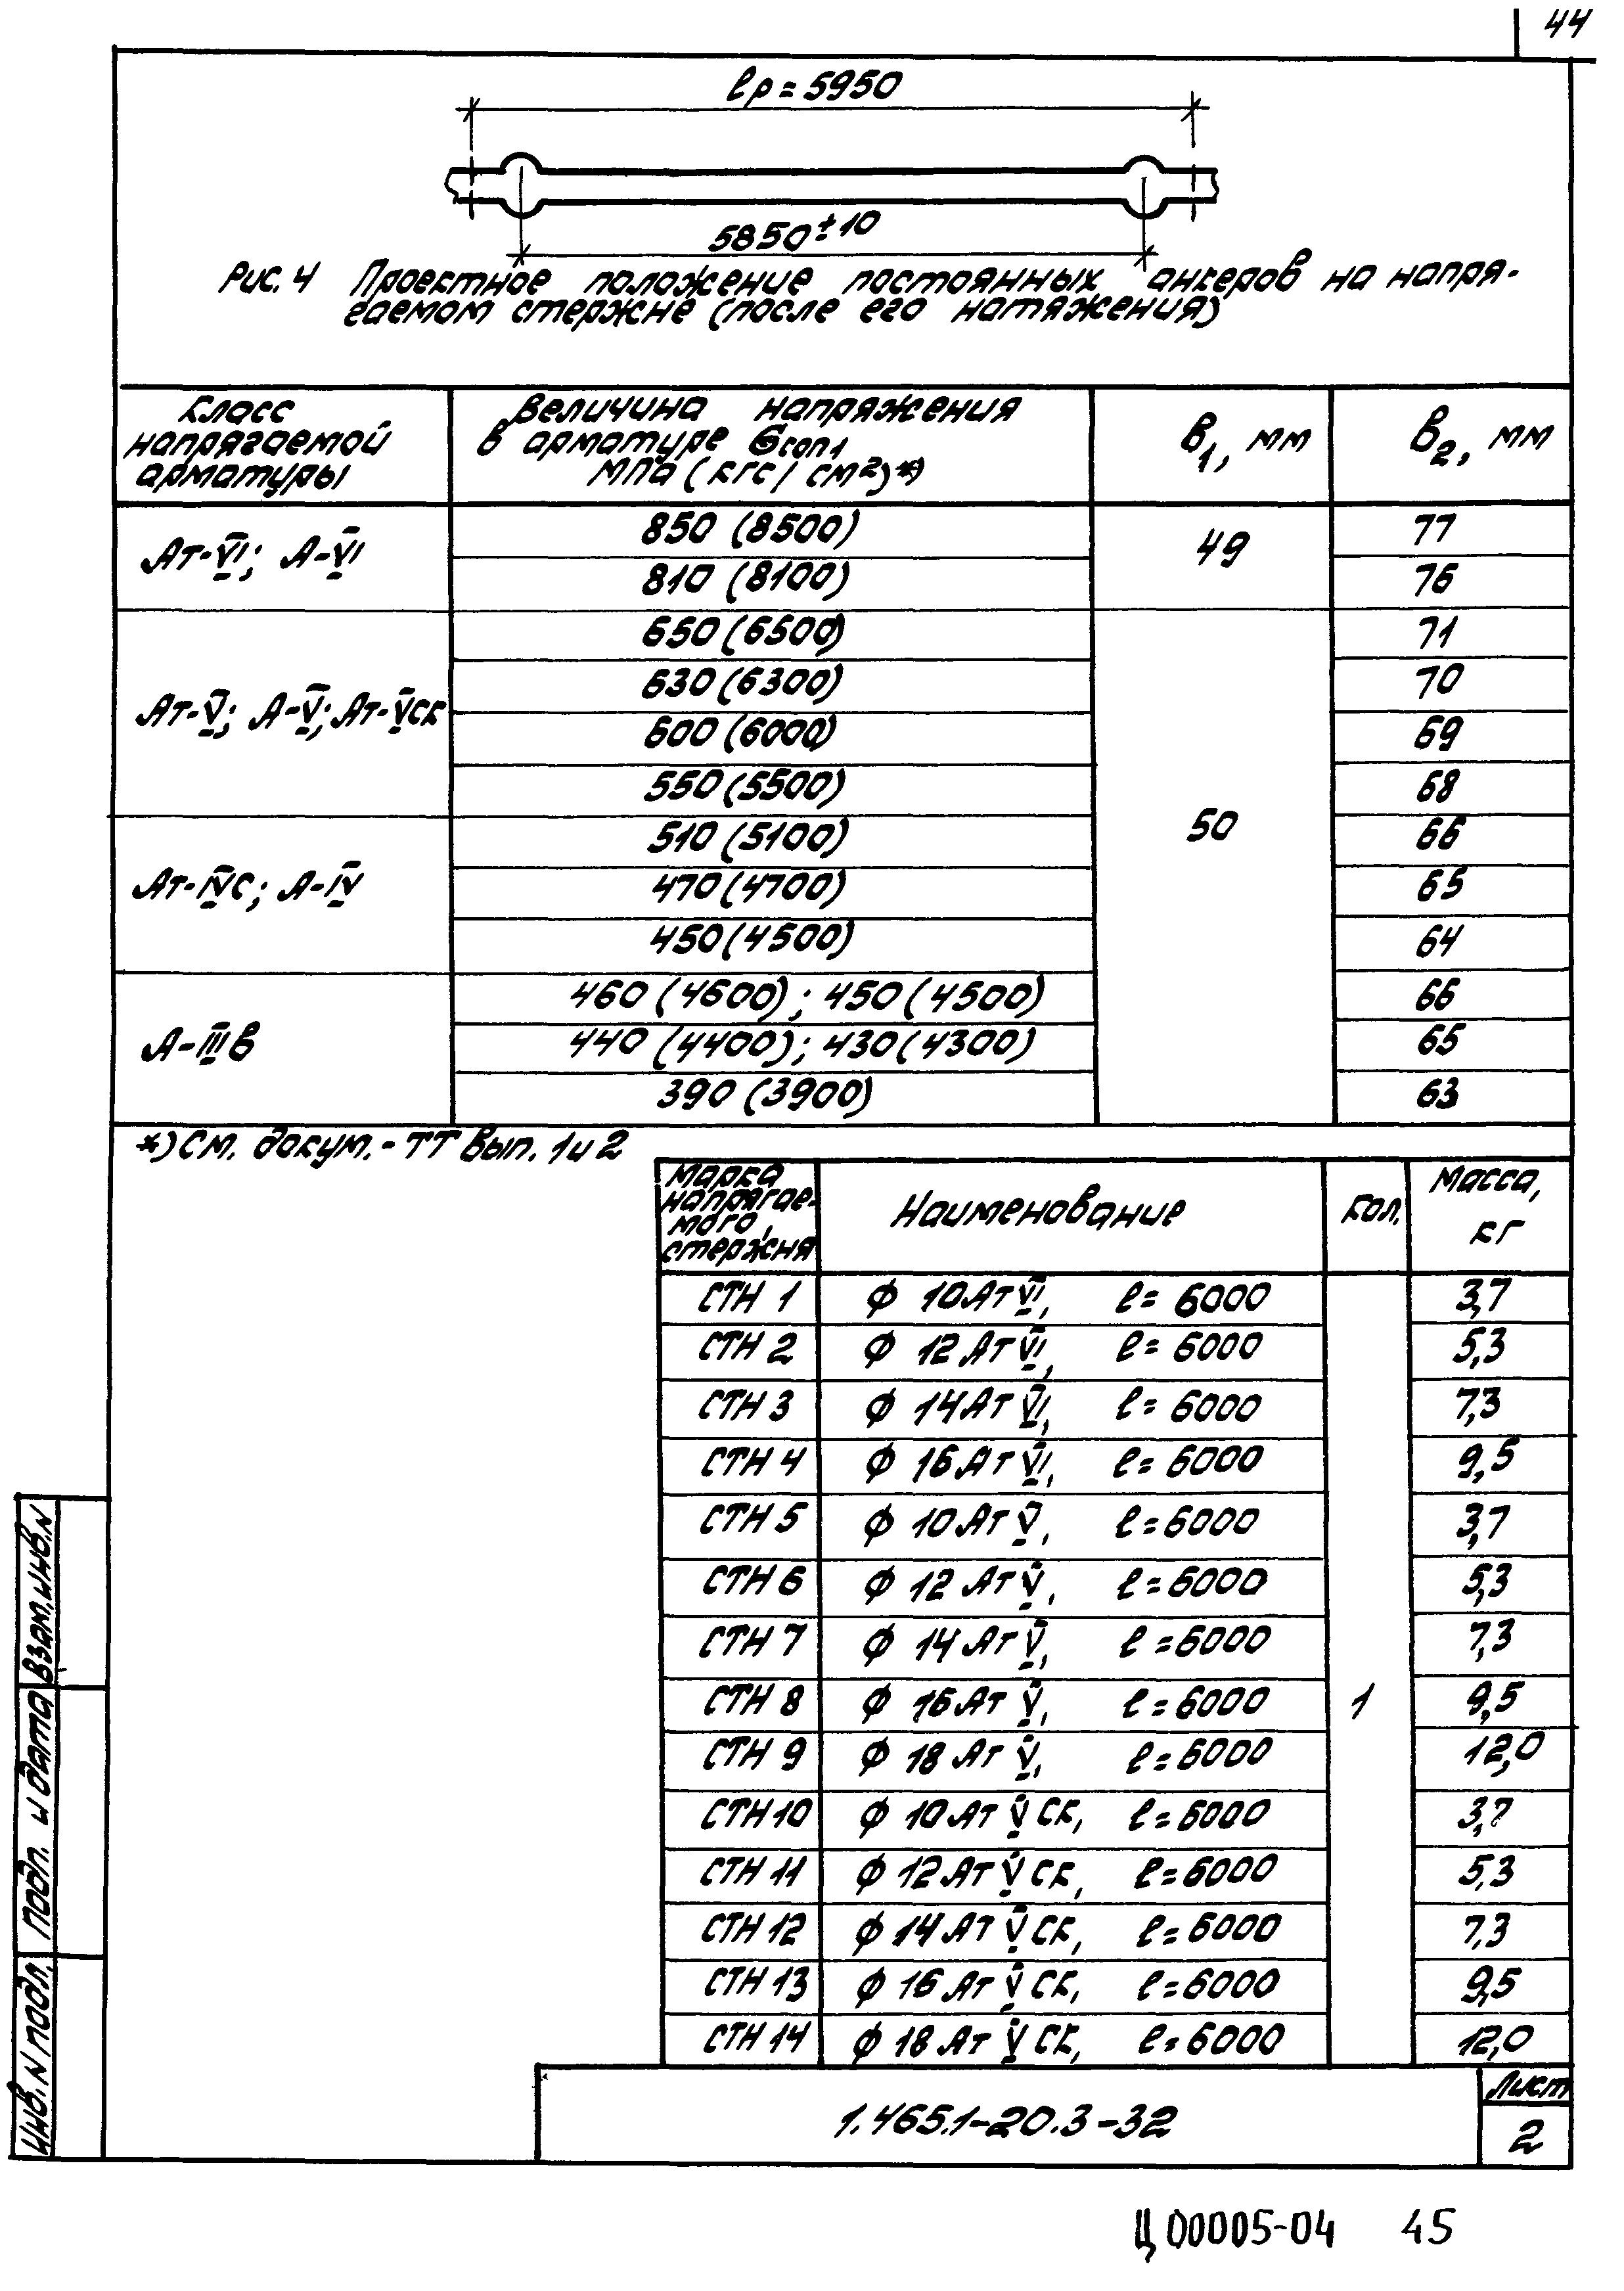 44
ℓр = 5950
5850±10
Рис. 4 Проектное положение постоянных анкеров на напря-
гаемом стержне (после его натяжения)
Класс напрягаемой арматуры
Величина напряжения в арматуре Ϭcon1 МПа (кгс/см²)*)
В1, мм
В2, мм
Ат-VI; А-VI
850 (8500)
49
77
810 (8100)
76
Ат-V; А-V; Ат-Vск
650 (6500)
50
71
630 (6300)
70
600 (6000)
69
550 (5500)
68
Ат-IVс; А-IV
510 (5100)
66
470 (4700)
65
450 (4500)
64
А-IIIв
460 (4600); 450 (4500)
66
440 (4400); 430 (4300)
65
390 (3900)
63
*) См. докум. - ТТ вып. 1 и 2
Марка напрягае-мого, стержня
Наименование
Кол.
Масса, кг
СТН 1 ϕ 10 Ат VI, ℓ= 6000 3,7
СТН 2 ϕ 12 Ат VI, ℓ= 6000 5,3
СТН 3 ϕ 14 Ат VI, ℓ= 6000 7,3
СТН 4 ϕ 16 Ат VI, ℓ= 6000 9,5
СТН 5 ϕ 10 Ат V, ℓ= 6000 3,7
СТН 6 ϕ 12 Ат V, ℓ= 6000 5,3
СТН 7 ϕ 14 Ат V, ℓ= 6000 7,3
СТН 8 ϕ 16 Ат V, ℓ= 6000 1 9,5
СТН 9 ϕ 18 Ат V, ℓ= 6000 12,0
СТН 10 ϕ 10 Ат V СК, ℓ= 6000 3,7
СТН 11 ϕ 12 Ат V СК, ℓ= 6000 5,3
СТН 12 ϕ 14 Ат V СК, ℓ= 6000 7,3
СТН 13 ϕ 16 Ат V СК, ℓ= 6000 9,5
СТН 14 ϕ 18 Ат V СК, ℓ= 6000 12,0
Инв. N подл.
Подп. и дата
Взам. инв. N
1.465.1-20.3-32
Лист
2
Ц00005-04 45